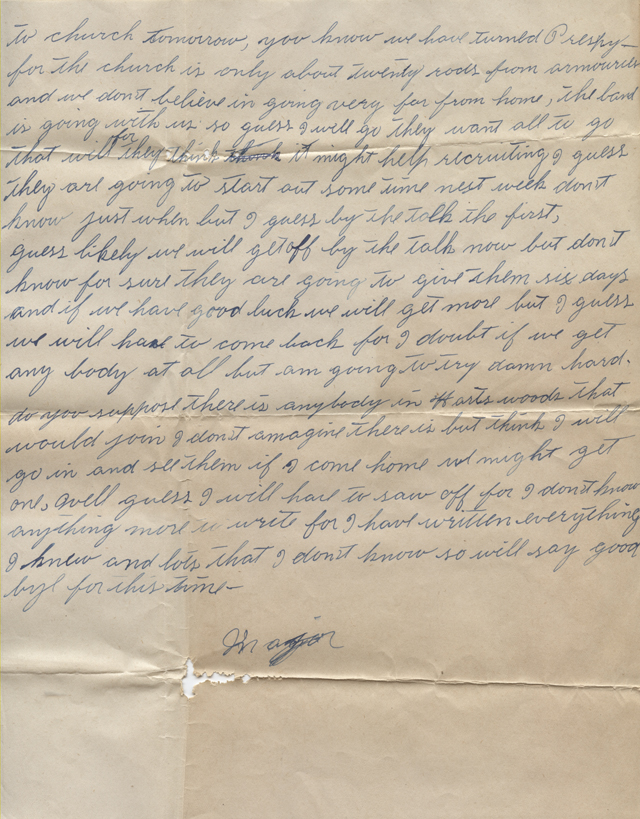 to church tomorrow, you know we have turned Prespy-
for the church is only about twenty rods from armouries
and we don't believe in going very far from home, the band
is going with us so guess I will go they want all to go
that will for they think it might help recruiting I guess
they are going to start out some time nest week don't
know just when but I guess by the talk the first,
guess likely we will get off by the talk now but don't
know for sure they are going to give them six days
and if we have good luck we will get more but I guess
we will have to come back for I doubt if we get
any body at all but am going to try damn hard.
do you suppose there is anybody in Harts woods that
would join I don't amagine there is but think I will
go in and see them if I come home we might get
one, Well guess I will have to saw off for I don't know
anything more to write for I have written everything
I knew and lots that I don't know so will say good
bye for this time-
Major